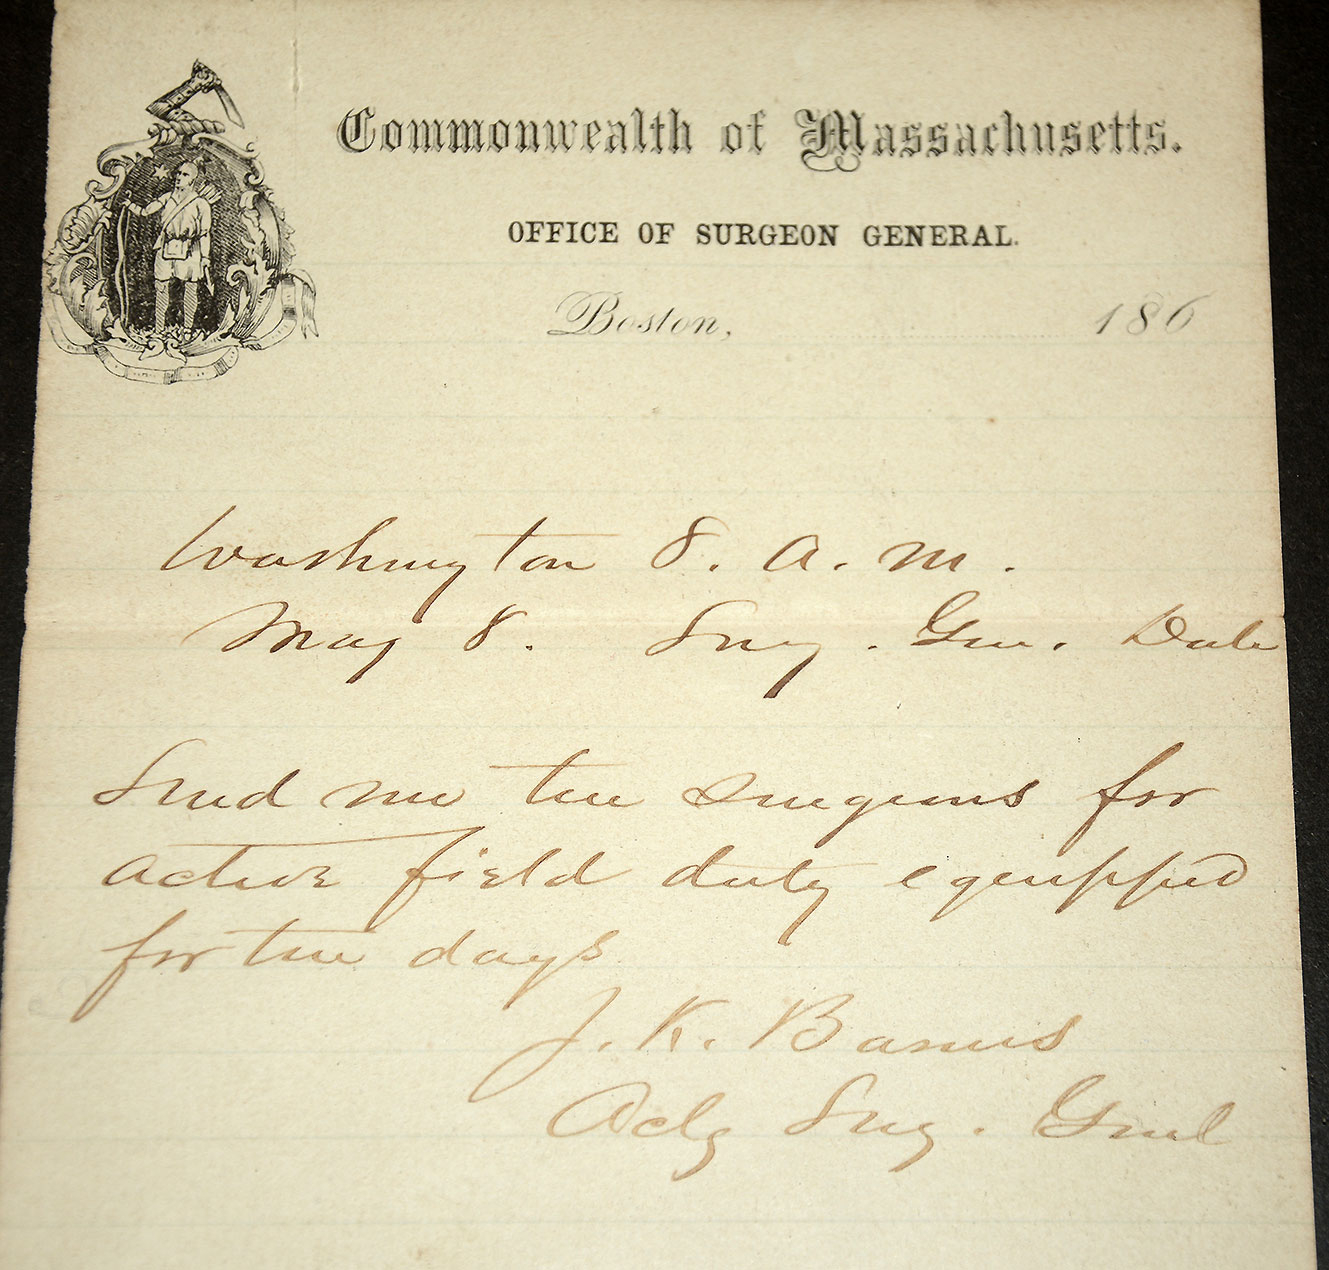 Commonwealth of Massachusetts.
OFFICE OF SURGEON GENERAL.
Boston, 186
Washington 8. A. M.
May 8. Surg. Gen. Dale
Send me ten surgeons for
active field duty equipped
for ten days
J. K. Barnes
Actg Surg. Genl